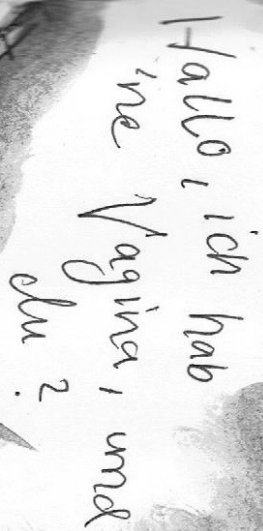 Hallo, ich hab
'ne Vagina, und
du?